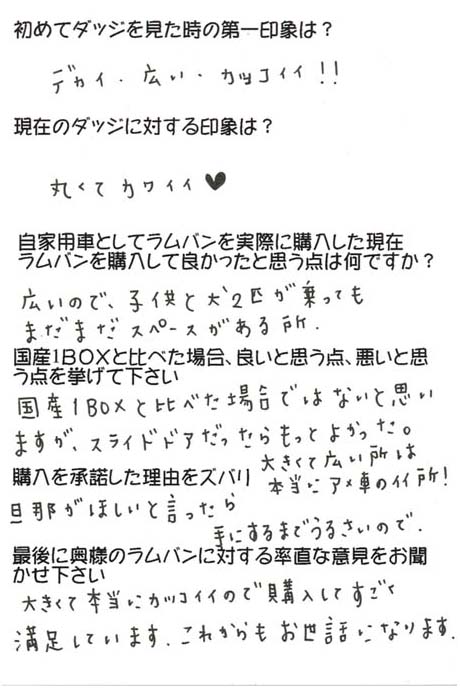 初めてダッジを見た時の第一印象は？
デカイ・広い・カッコイイ！！
現在のダッジに対する印象は？
丸くてカワイイ♥
自家用車としてラムバンを実際に購入した現在
ラムバンを購入して良かったと思う点は何ですか？
広いので、子供と犬2匹が乗っても
まだまだスペースがある所．
国産1BOXと比べた場合、良いと思う点、悪いと思
う点を挙げて下さい
国産1BOXと比べた場合ではないと思い
ますが、スライドドアだったらもっとよかった。
大きくて広い所は
本当にアメ車のイイ所！
購入を承諾した理由をズバリ
旦那がほしいと言ったら
手にするまでうるさいので．
最後に奥様のラムバンに対する率直な意見をお聞
かせ下さい
大きくて本当にカッコイイので購入してすごく
満足しています．これからもお世話になります．